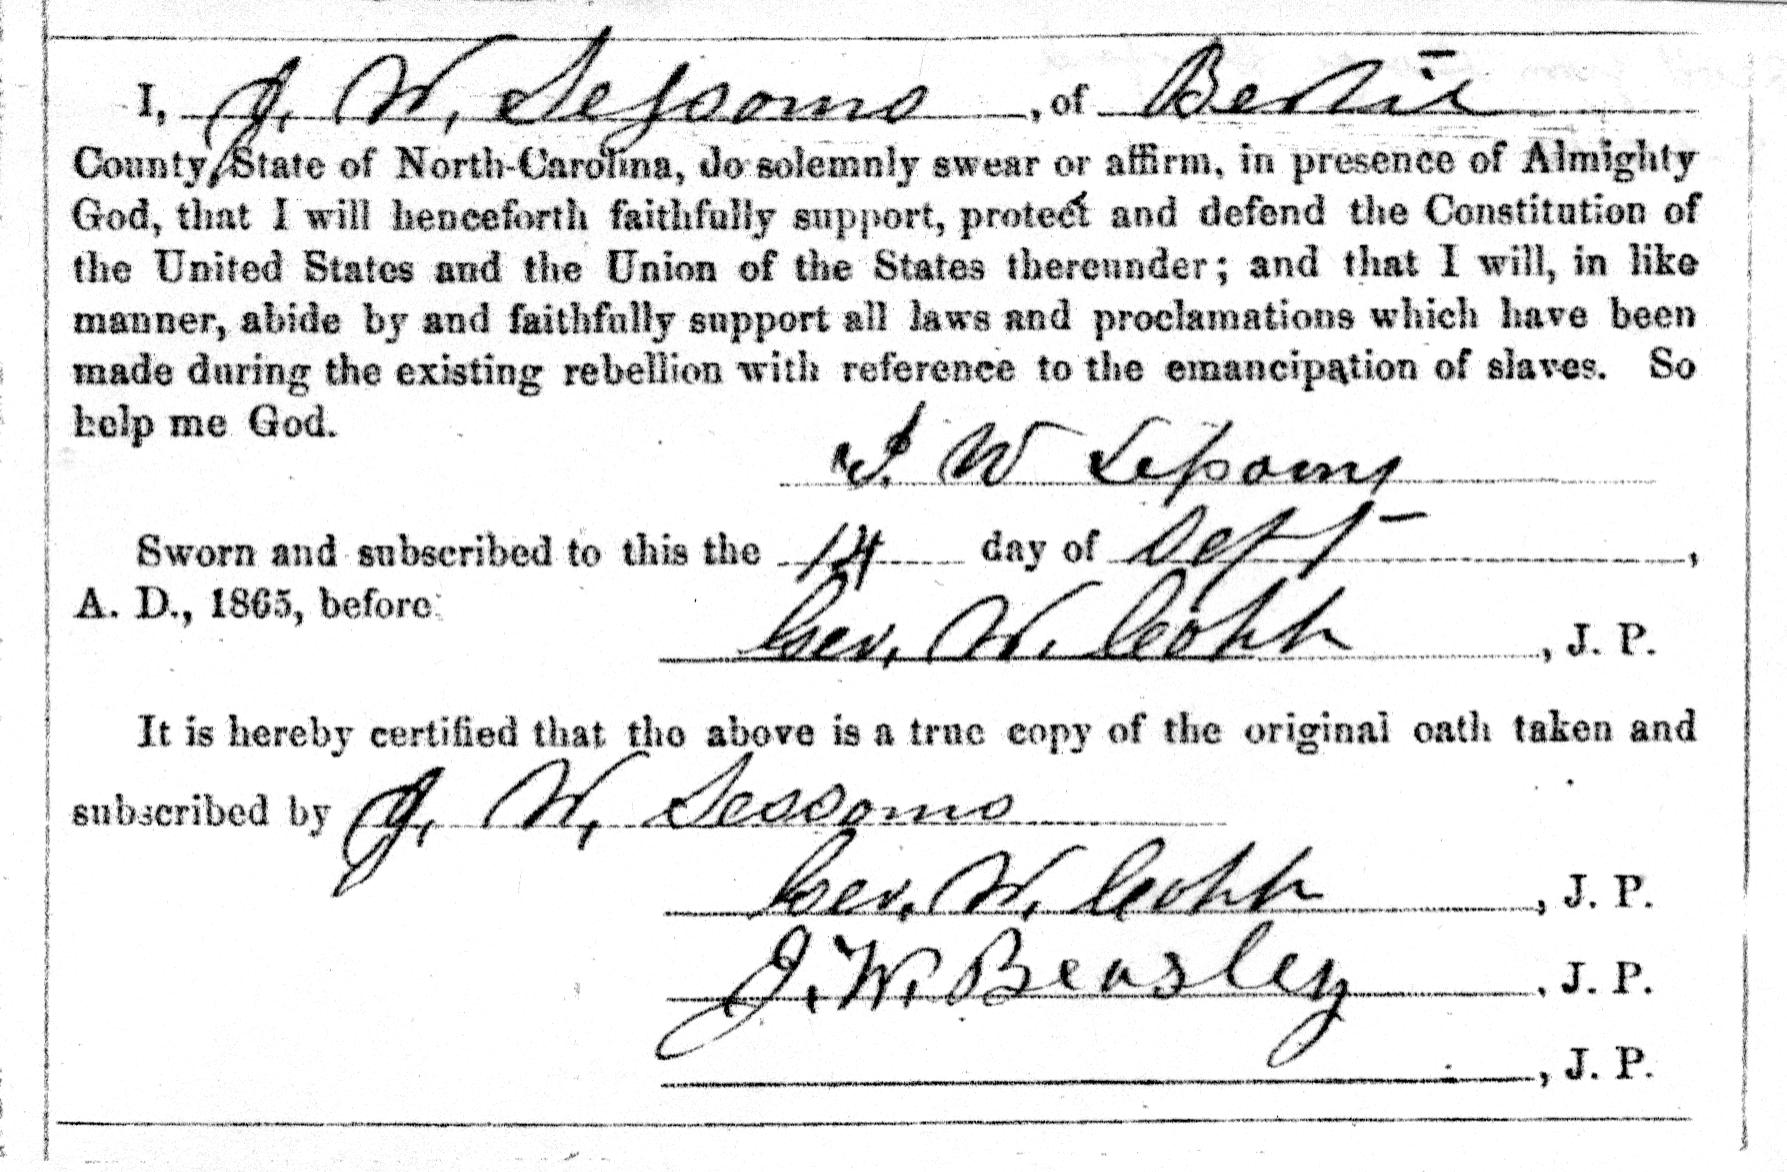 I, J. W. Sessoms, of Bertie
County, State of North-Carolina, do solemnly swear or affirm, in presence of Almighty
God, that I will henceforth faithfully support, protect and defend the Constitution of
the United States and the Union of the States thereunder; and that I will, in like
manner, abide by and faithfully support all laws and proclamations which have been
made during the existing rebellion with reference to the emancipation of slaves. So
help me God.
J. W Sessoms
Sworn and subscribed to this the 14 day of Sept,
A. D., 1865, before
Geo. W. Cobb, J. P.
It is hereby certified that the above is a true copy of the original oath taken and
subscribed by J. W. Sessoms
Geo. W. Cobb, J. P.
J. W. Beasley, J. P.
, J. P.